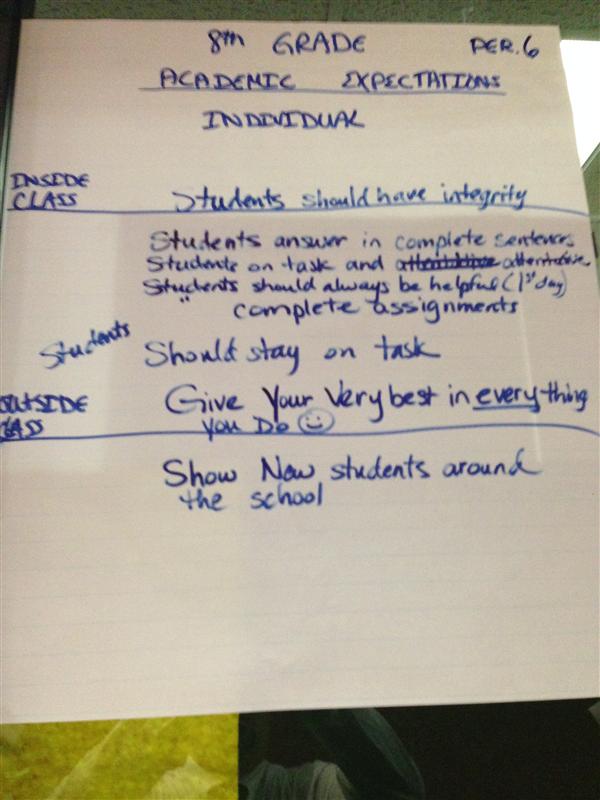 8th GRADE PER. 6
ACADEMIC EXPECTATIONS
INDIVIDUAL
INSIDE
CLASS
Students should have integrity
Students answer in complete sentences
Students on task and attentative
Students should always be helpful (1st day)
" complete assignments
Students Should stay on task
OUTSIDE
CLASS
Give Your Very best in everything
you Do
Show New students around
the school